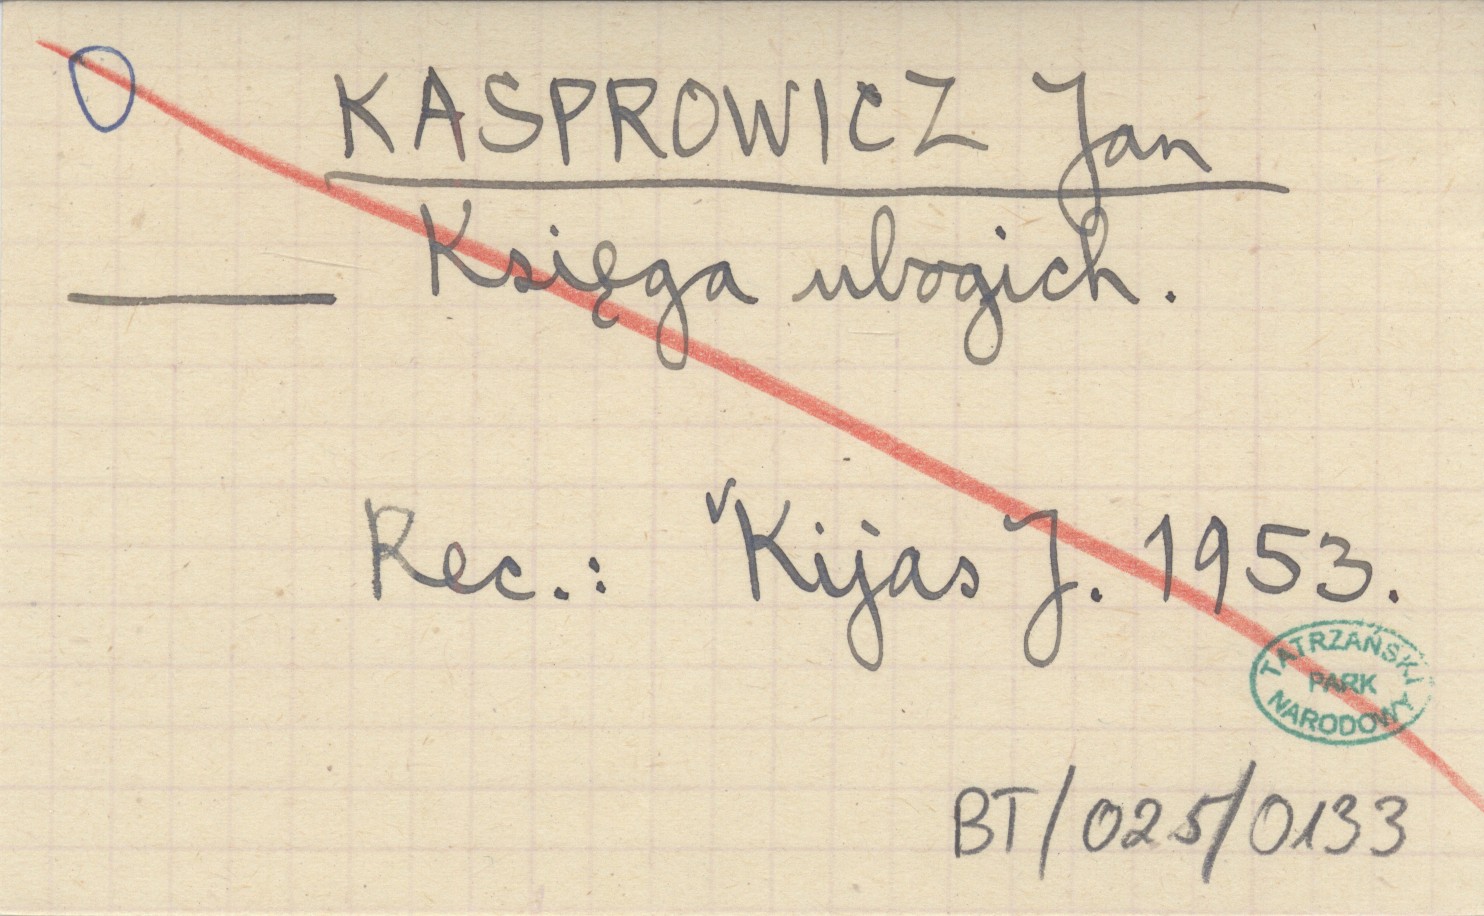 KASPROWICZ Jan
Księga ubogich.
Rec.: Kijas J. 1953.
TATRZAŃSKI
PARK
NARODOWY
BT/025/0133